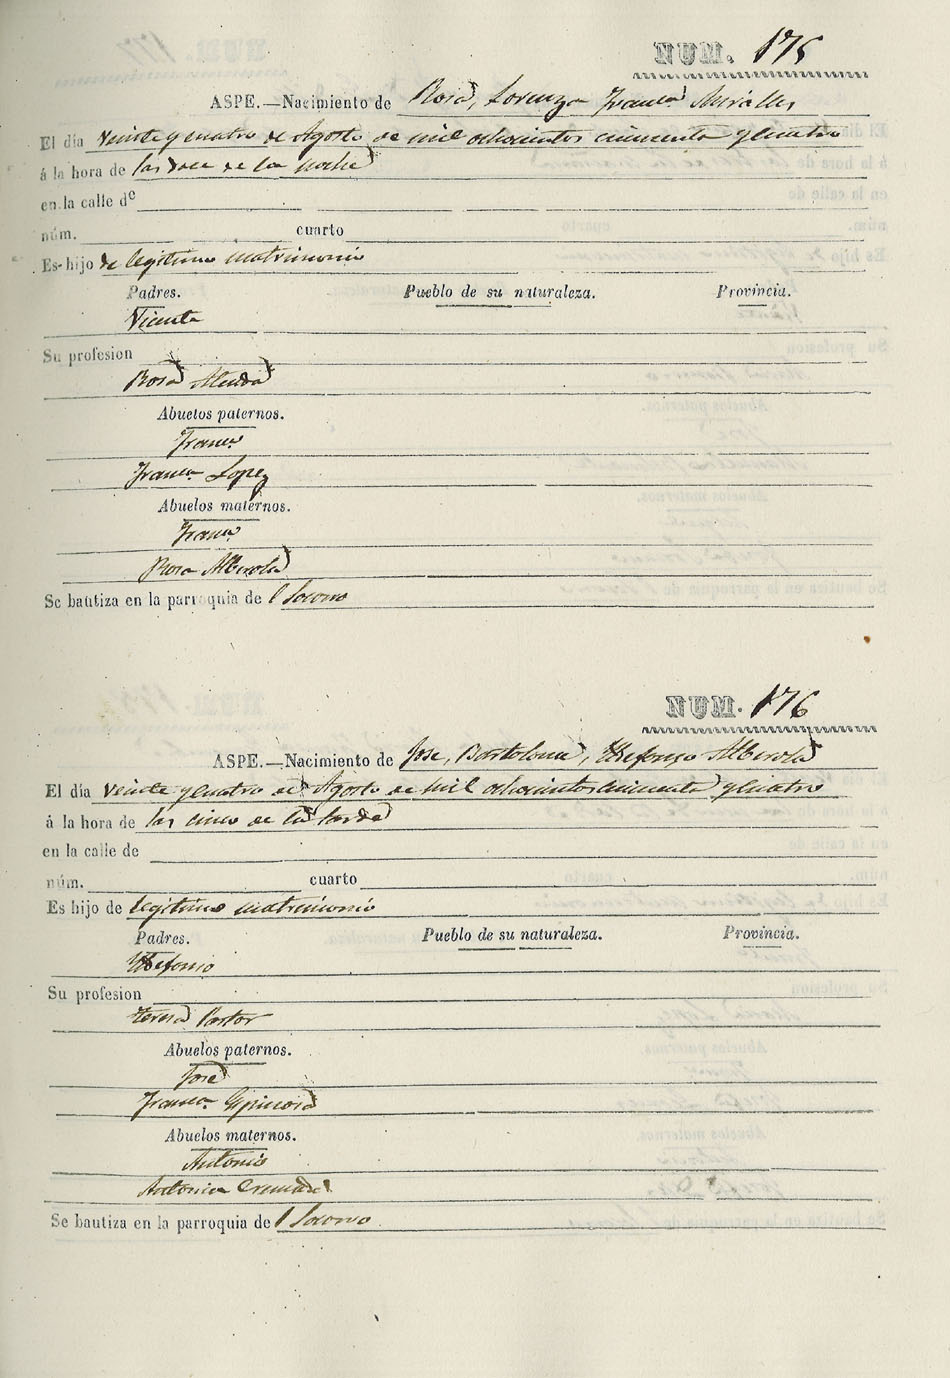 NUM. 175
ASPE.—Nacimiento de Rosa, Lorenza Franca Miralles
El día veinte y cuatro de Agosto de mil ochocientos cincuenta y cuatro
á la hora de las doce de la noche
en la calle de
núm. cuarto
Es hijo de legitimo matrimonio
Padres. Pueblo de su naturaleza. Provincia.
Vicente
Su profesion
Rosa
Abuelos paternos.
Franco
Franca Lopez
Abuelos maternos.
Franco
Rosa Alberola
Se bautiza en la parroquia de l Socorro
NUM. 176
ASPE.—Nacimiento de Jose, Bartolome, Ildefonso Alberola
El día veinte y cuatro de Agosto de mil ochocientos cincuenta y cuatro
á la hora de las cinco de la tarde
en la calle de
núm. cuarto
Es hijo de legitimo matrimonio
Padres. Pueblo de su naturaleza. Provincia.
Ildefonso
Su profesion
Teresa Pastor
Abuelos paternos.
José
Franca Espinosa
Abuelos maternos.
Antonio
Antonia Cremades
Se bautiza en la parroquia de l Socorro